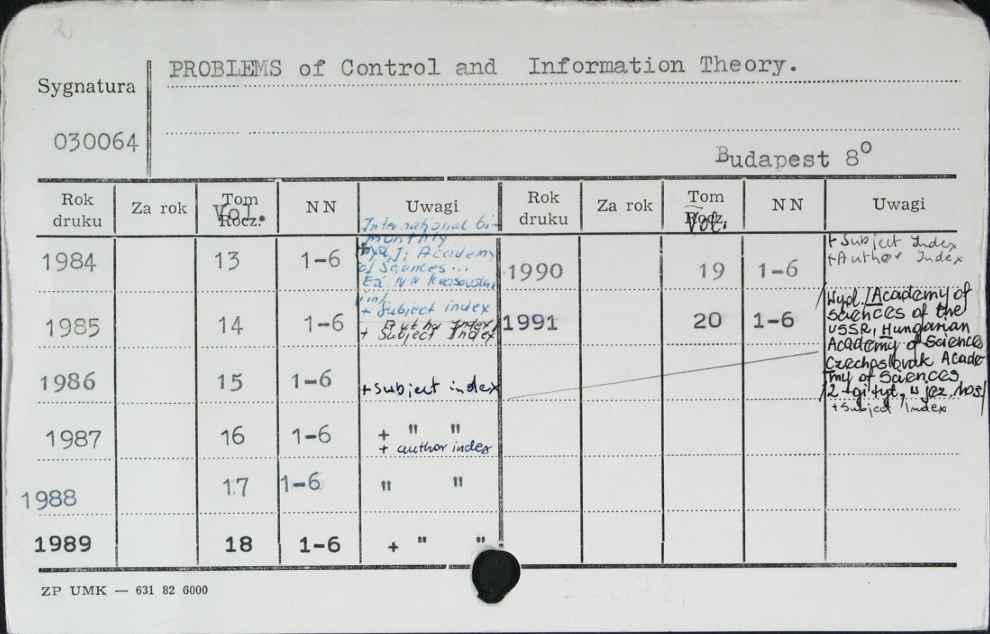 2
PROBLEMS of Control and Information Theory.
Sygnatura
030064
Budapest 8o
Rok druku Za rok Tom Rocz. Vol. NN Uwagi Rok druku Za rok Tom Rocz. Vol. NN Uwagi
1984 13 1-6
International bi-
monthly
Academy
of Sciences...
Ed. NN
+ Subject index
1985 14 1-6
+ Author Index
+ Subject Index
1986 15 1-6 + subject index
1987 16 1-6 + " "
+ author index
1988 17 1-6 " "
1989 18 1-6 + " "
1990 19 1-6
+ Subject Index
+ Author Index
1991 20 1-6
/Wyd. /Academy of
Sciences of the
USSR, Hungarian
Academy of Sciences
Czechoslovak Acade
my of Sciences
/2-gi tyt. w jęz. ros/
+ Subject Index
ZP UMK — 631 82 6000